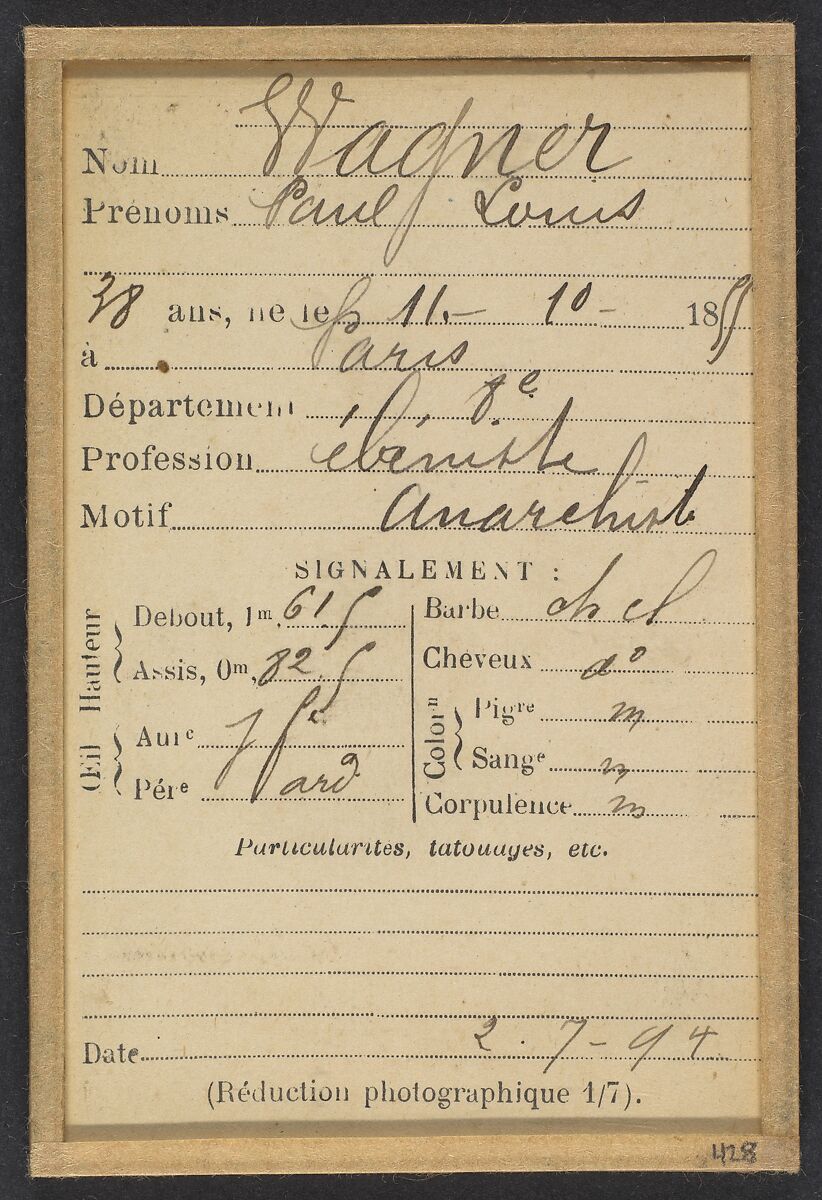 Nom Wagner
Prénoms Paul Louis
38 ans, né le 11.- 10- 1855
à Paris
Département 8e
Profession ébéniste
Motif Anarchiste
SIGNALEMENT :
Hauteur
Debout, 1m, 61.5
Assis, 0m, 82.5
Œil
Aule
Pére
Barbe ch cl
Cheveux do
Colorn
Pigre m
Sange m
Corpulence m
Particularités, tatouages, etc.
Date 2.7-94
(Réduction photographique 1/7).
428